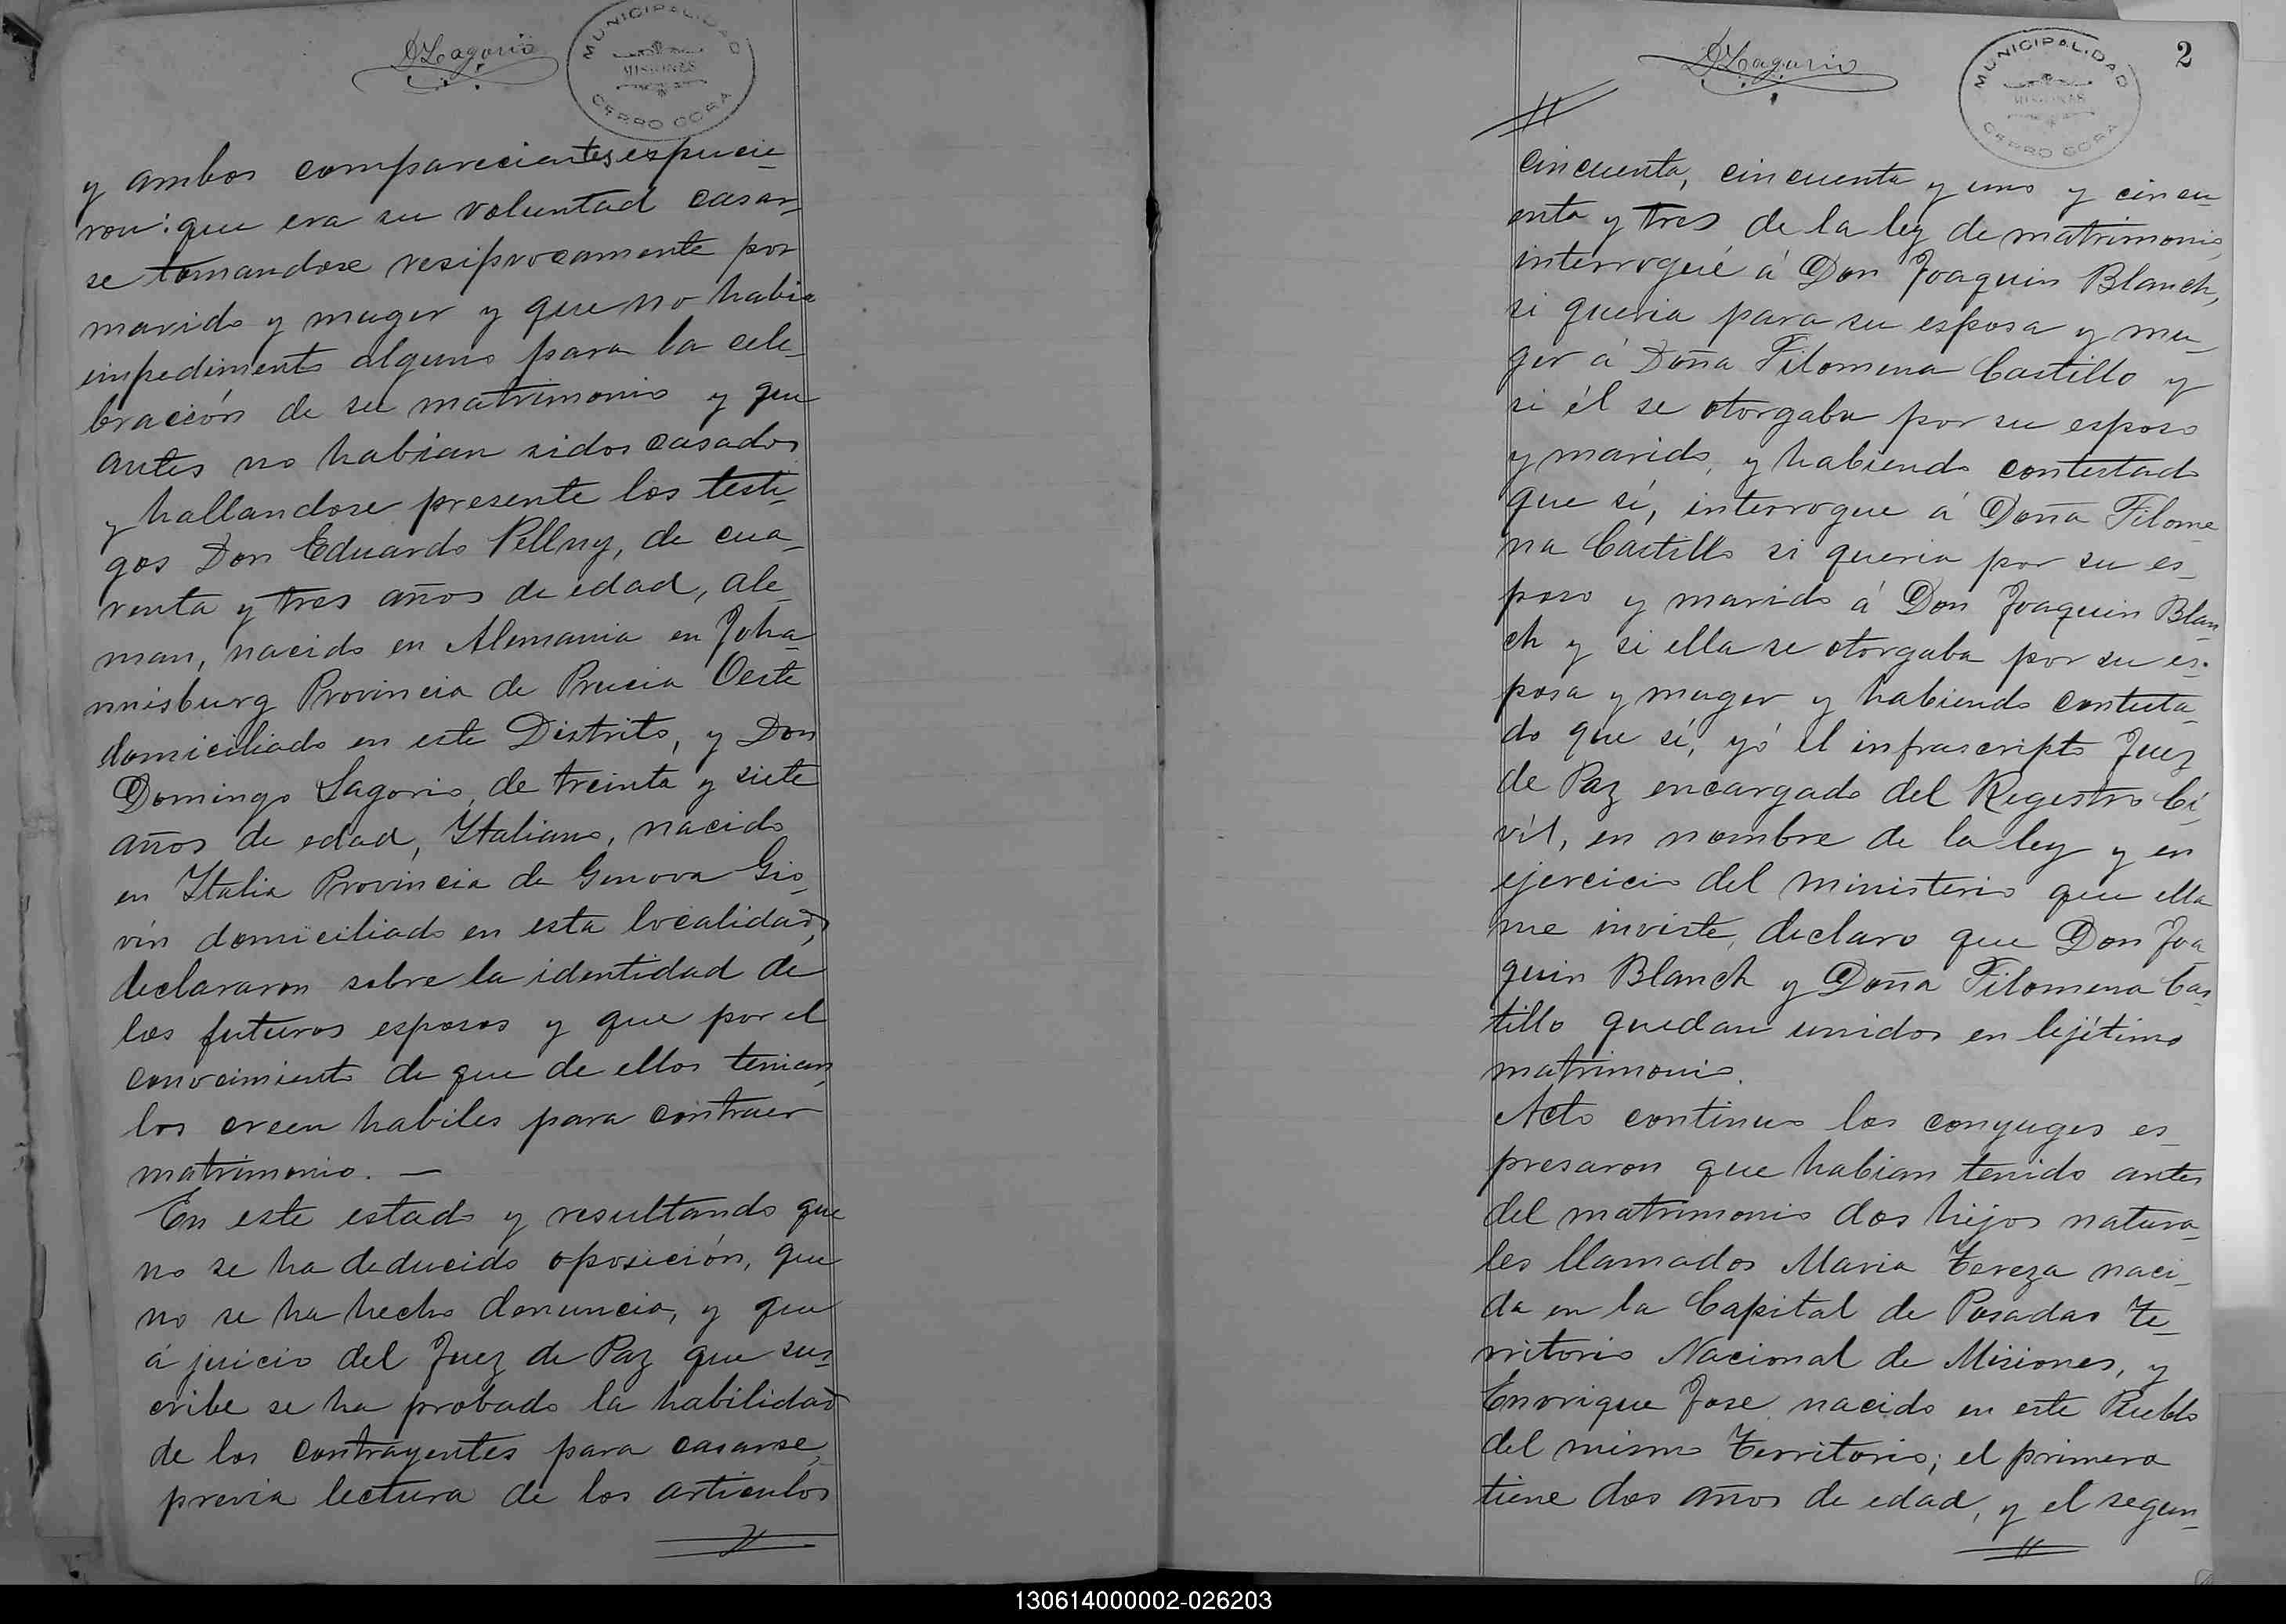 DLagorio
MUNICIPALIDAD
MISIONES
CERRO CORA
y ambos comparecientes espucie-
ron: que era su voluntad casar-
se tomandose resiprocamente por
marido y muger y que no habia
impedimento alguno para la cele-
bración de su matrimonio y que
antes no habian sidos casados
y hallandose presente los testi-
gos Don Eduardo Pellny, de cua-
renta y tres años de edad, ale-
man, nacido en Alemania en Joha-
nnisburg Provincia de Prucia Oeste
domiciliado en este Distrito, y Don
Domingo Lagorio, de treinta y siete
años de edad, Italiano, nacido
en Italia Provincia de Genova Gio-
vin domiciliado en esta localidad,
declararon sobre la identidad de
los futuros esposos y que por el
conocimiento de que de ellos tenian,
los creen habiles para contraer
matrimonio. —
En este estado y resultando que
no se ha deducido oposición, que
no se ha hecho denuncia, y que
á juicio del Juez de Paz que sus-
cribe se ha probado la habilidad
de los contrayentes para casarse,
previa lectura de los articulos
DLagorio
MUNICIPALIDAD
MISIONES
CERRO CORA
2
cincuenta, cincuenta y uno y cincu-
enta y tres de la ley de matrimonio,
interrogué á Don Joaquin Blanch,
si queria para su esposa y mu-
ger á Doña Filomena Castillo y
si él se otorgaba por su esposo
y marido, y habiendo contestado
que sí, interrogue á Doña Filome
na Castillo si queria por su es-
poso y marido á Don Joaquin Blan-
ch y si ella se otorgaba por su es-
posa y muger y habiendo contesta-
do que sí, yó el infrascripto Juez
de Paz encargado del Registro Ci-
vil, en nombre de la ley y en
ejercicio del ministerio que ella
me inviste, declaro que Don Joa-
quin Blanch y Doña Filomena Cas-
tillo quedan unidos en lejítimo
matrimonio.
Acto continuo los conyuges es-
presaron que habian tenido antes
del matrimonio dos hijos natura-
les llamados Maria Tereza naci-
da en la Capital de Posadas Te-
rritorio Nacional de Misiones, y
Enrrique Jose nacido en este Pueblo
del mismo Territorio; el primero
tiene dos años de edad, y el segun-
130614000002-026203